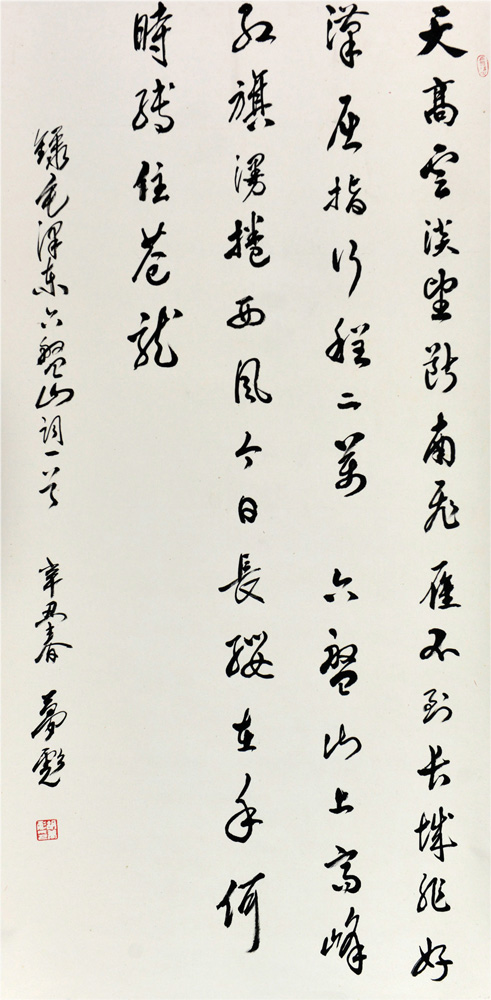 天高雲淡望斷南飛雁不到長城非好
漢屈指行程二萬 六盤山上高峰
紅旗漫捲西風今日長纓在手何
時縛住蒼龍
錄毛澤東六盤山詞一首 辛丑春